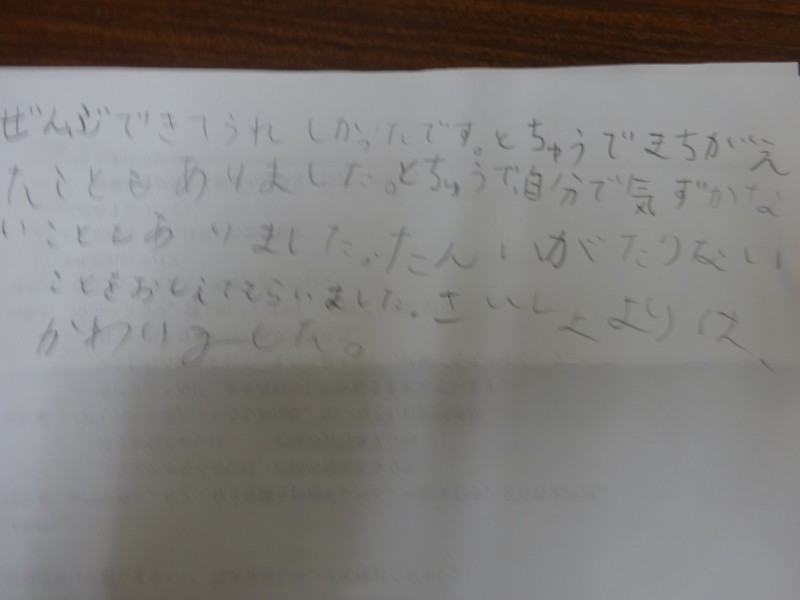 ぜんぶできてうれしかったです。とちゅうでまちがえ
たこともありました。とちゅうで、自分で気ずかな
いこともありました。たんいがたりない
ことをおしえてもらいました。さいしょよりは、
かわりました。